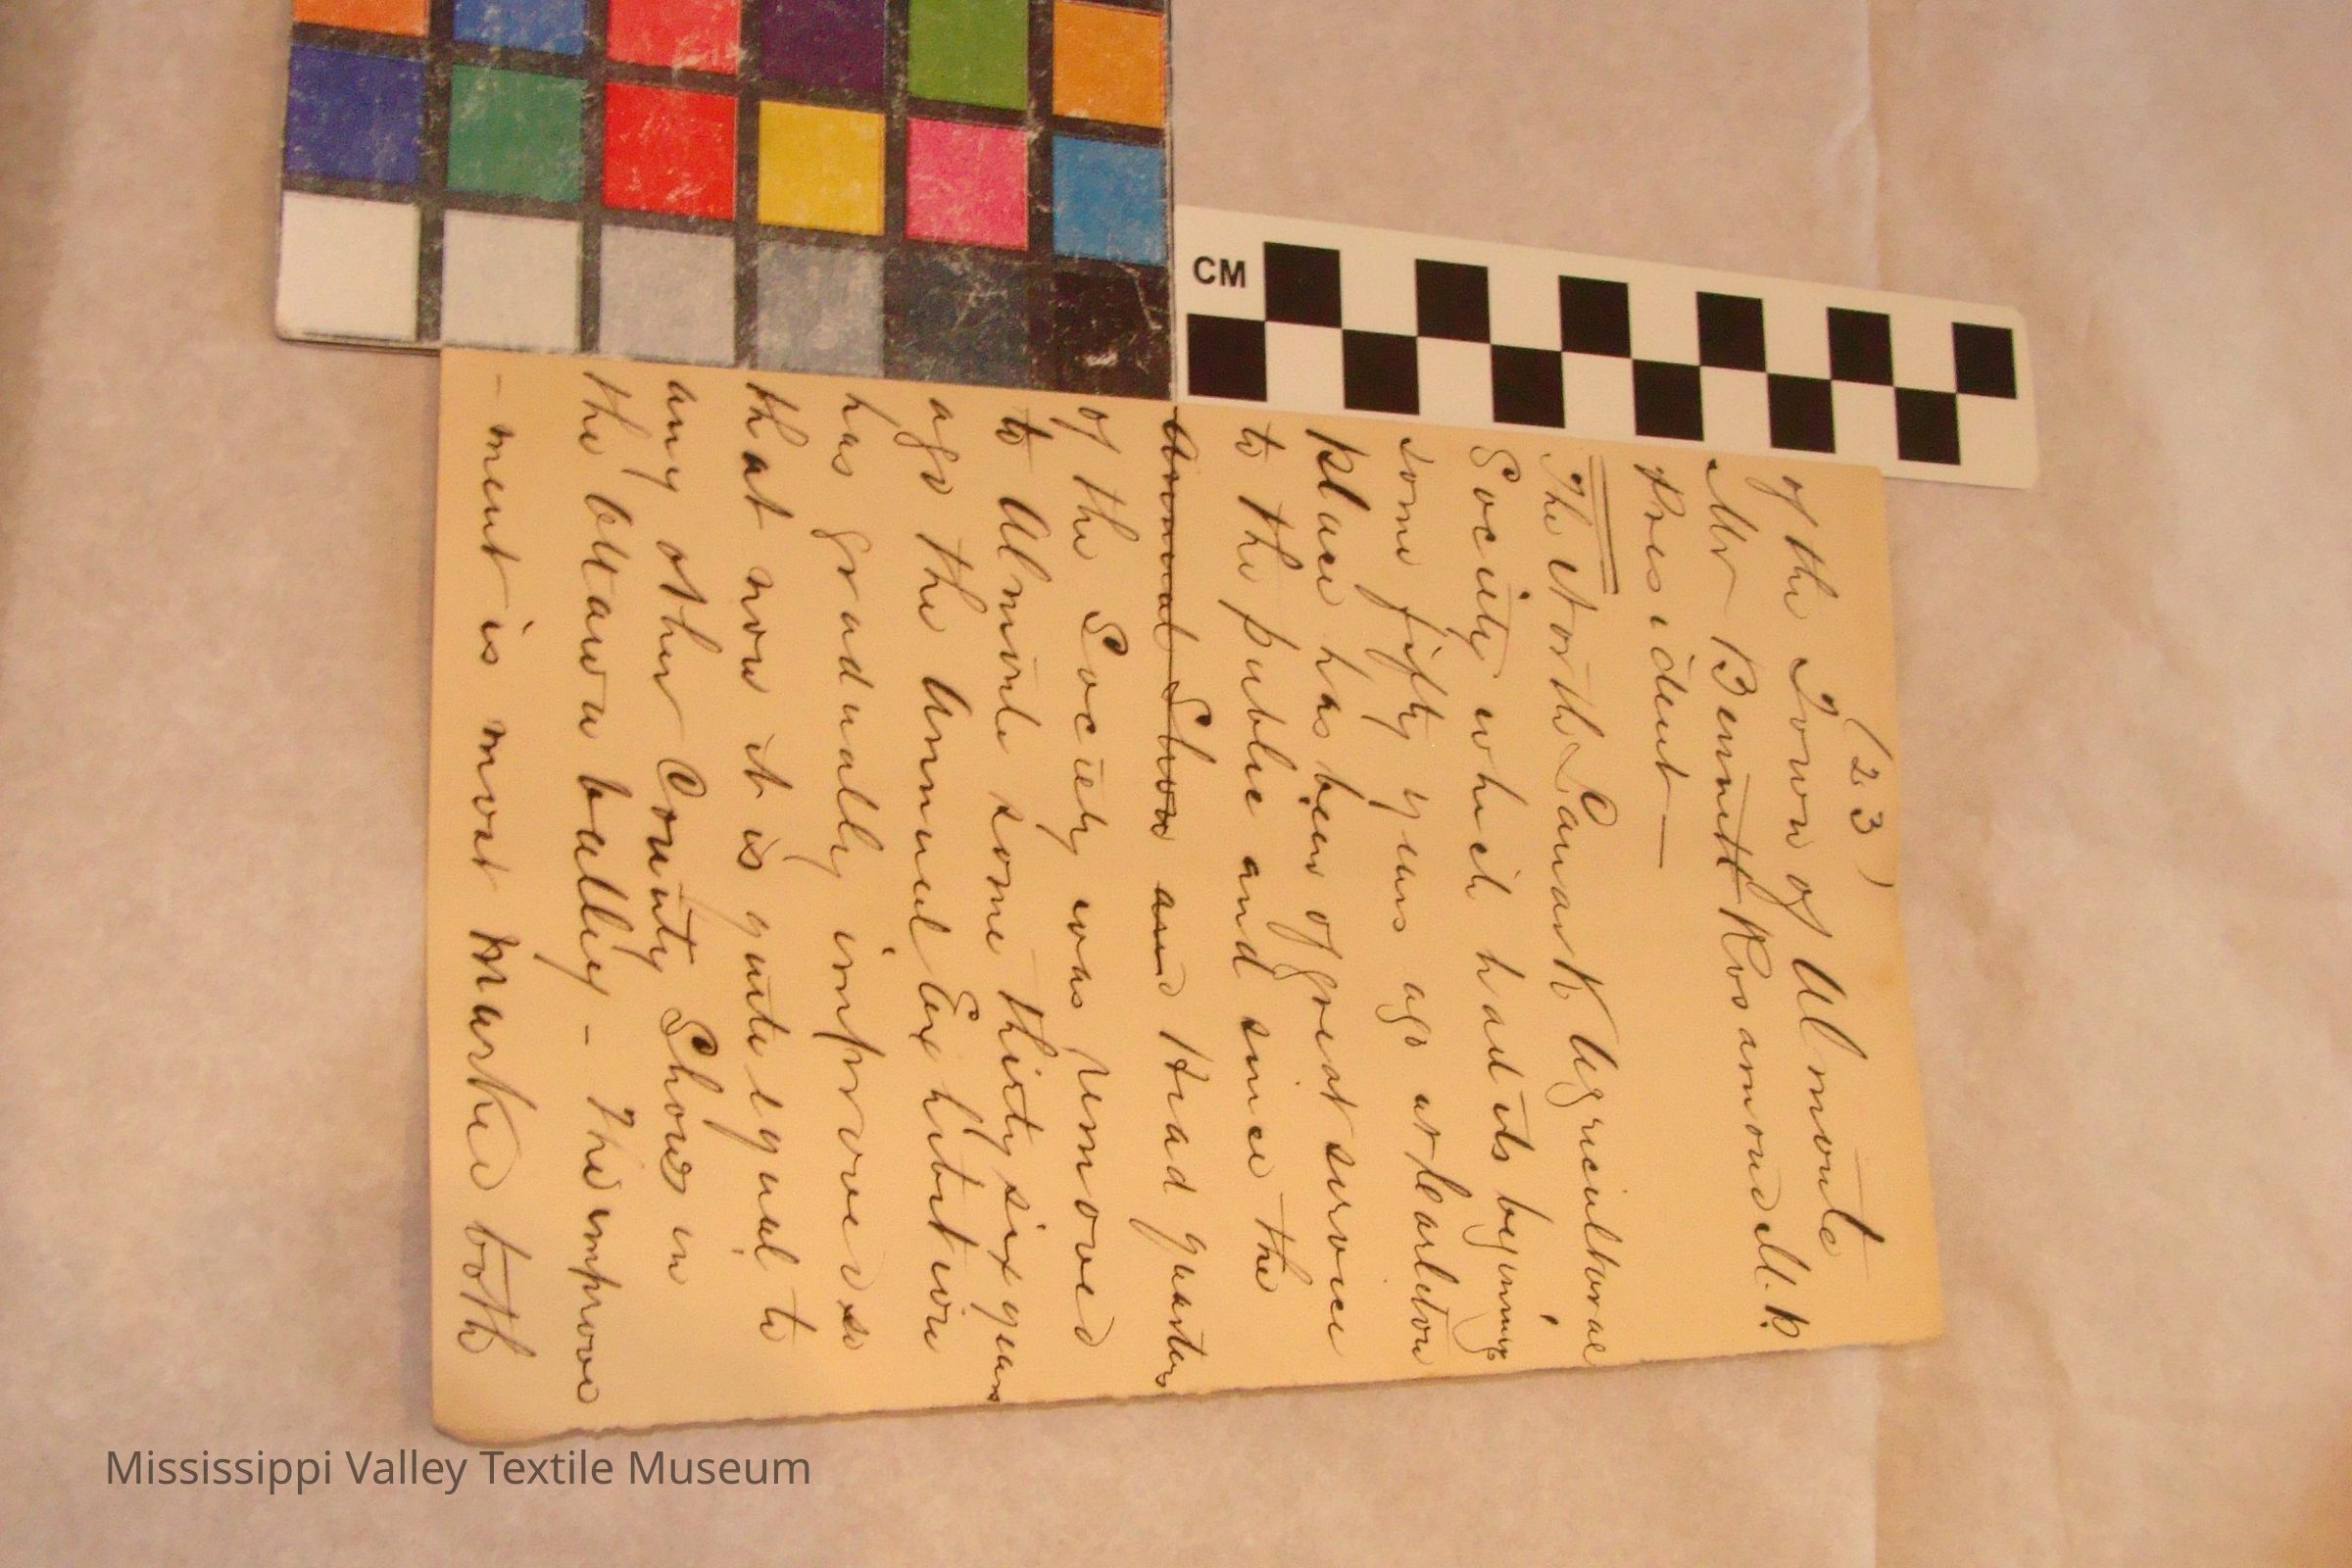 (23)
of the Town of Almonte
Mr Bennett Rosamond M.P.
President —
The North Lanark Agricultural
Society which had its beginnings
some fifty years ago at Carleton
place has been of great service
to the public and since the
Annual Show and Head quarters
of the Society was removed
to Almonte some thirty six years
ago the Annual Exhibition
has gradually improved so
that now it is quite equal to
any other County Show in
the Ottawa valley - The improve
- ment is most marked both
CM
Mississippi Valley Textile Museum